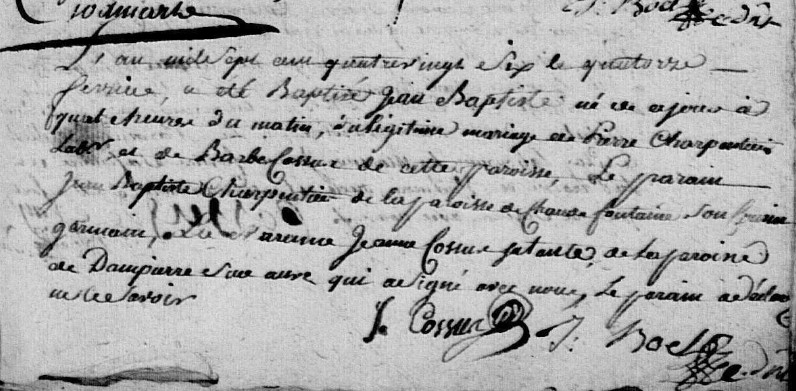 J: Boels
L'an mil sept cent quatrevingt Six le quatorze
fevrier, a eté Baptizé Jean Baptiste né ce ajour à
quatre heures du matin, du légitime mariage de Pierre Charpentier
Labr et de Barbe Cossus de cette paroisse, Le parain
Jean Baptiste Charpentier de la paroisse de Chaude fontaine son cousin
germain, La maraine Jeanne Cossus sa tante, de la paroisse
de Dampierre Sur auve qui a Signé avec nous, Le parain a déclaré
ne le Savoir
J. Cossus J: Boels